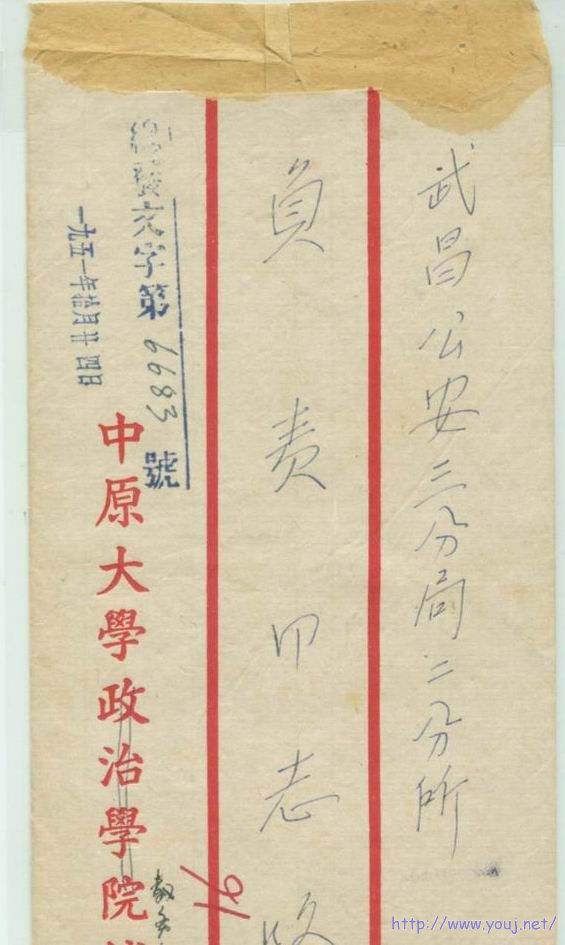 武昌公安三分局二分所
負责同志收
總發文字第6683號
一九五一年拾月廿四日
中原大學政治學院
91
http://www.youj.net/